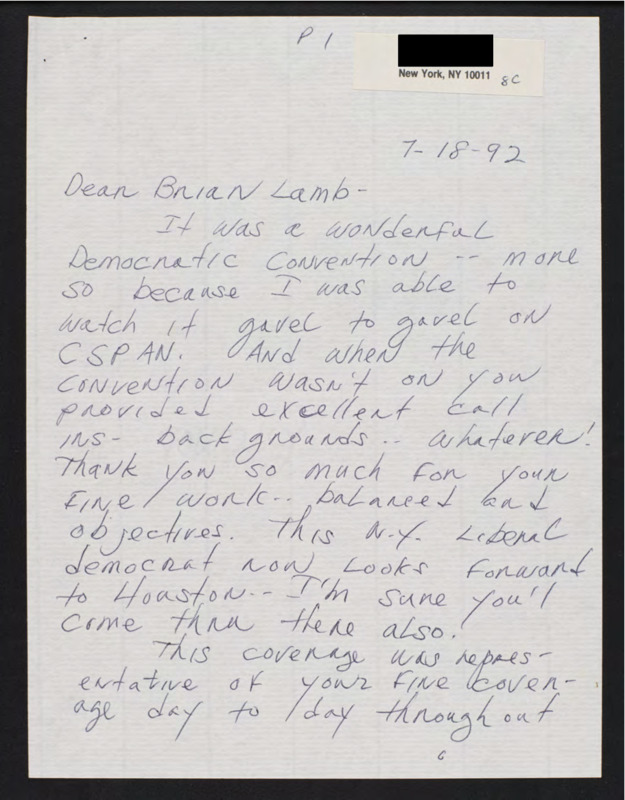 P 1
New York, NY 10011 8C
7-18-92
Dear Brian Lamb-
It was a wonderful
Democratic Convention -- more
so because I was able to
watch it gavel to gavel on
CSPAN. And when the
convention wasn't on you
provided excellent call
ins- back grounds -- whatever!
Thank you so much for your
fine work-- balanced and
objectives. This N.Y. Liberal
democrat now looks forward
to Houston-- I'm sure you'll
come thru there also!
This coverage was repres-
entative of your fine cover-
age day to day through out